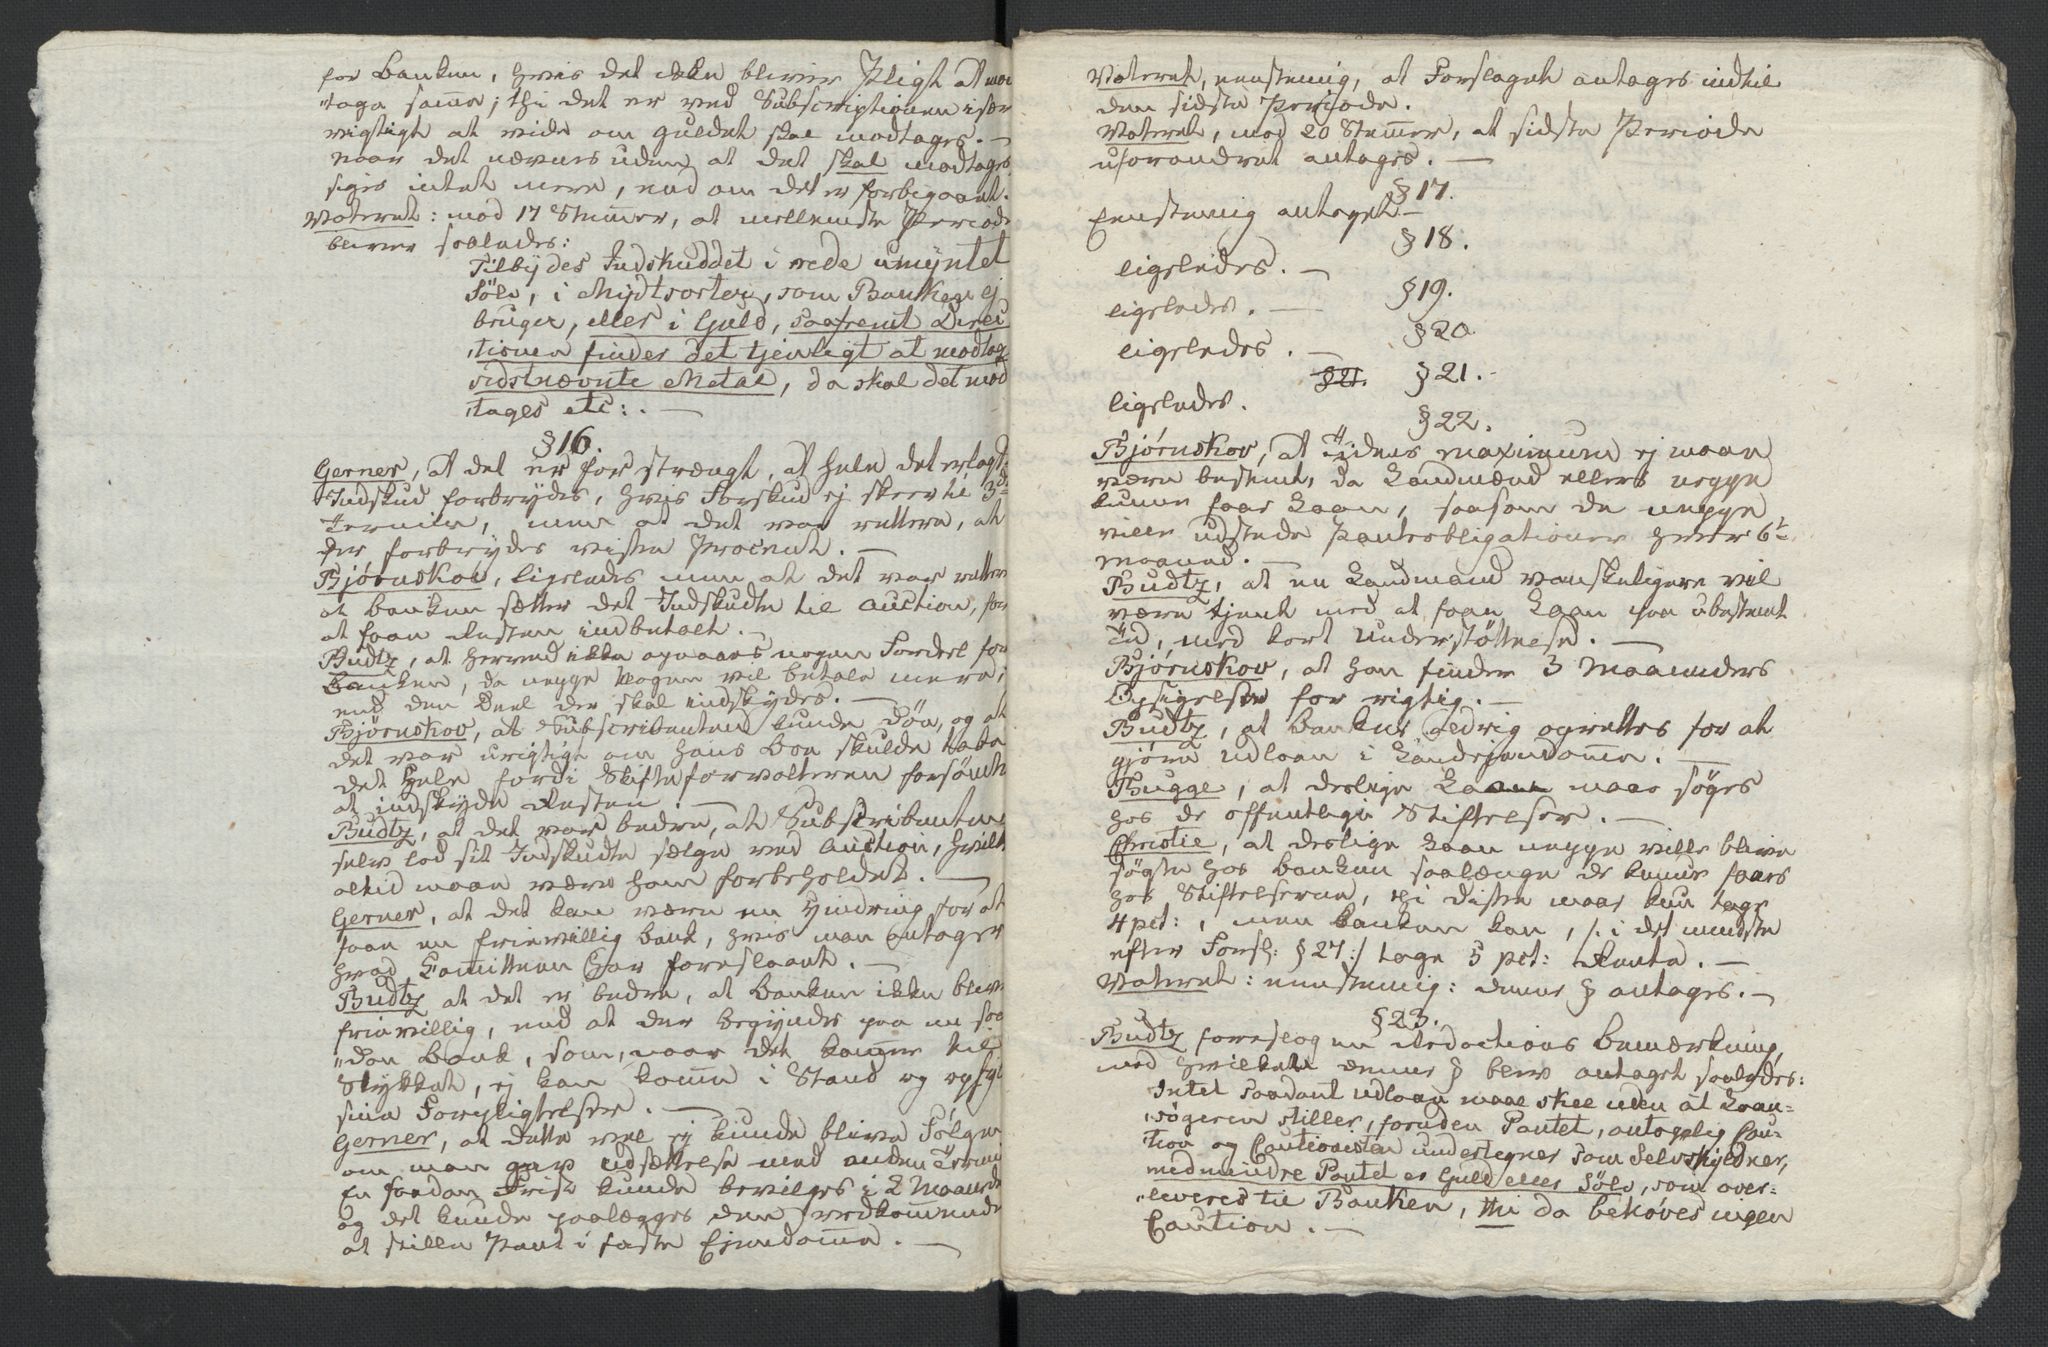 for Banken, hvis det ikke bliver Pligt at mod
"tage samme; thi det er ved Subscriptionen især
vigtigt at vide om Guldet skal modtages. —
naar det nævnes uden at det skal modtages
siges intet mere, end om det er forbigaaet.
Voteret: mod 17 Stemmer, at mellemste Periode
bliver saaledes:
Tilbydes Indskuddet i rede umyntet
Sölv, i Myntsorter, som Banken ej
bruger, eller i Guld, saafremt Direc
"tionen finder det tjenligt at modtage
sidstnævnte Metal, da skal det mod
"tages etc: . —
§ 16.
Gerner, at det er for strængt, at hele det erlagte
Indskud forbrydes, hvis Forskud ej skeer til 3die
Termin, men at det var rettere, at
der forbrydes visse Procent. —
Bjørnskov, ligeledes men at det var rettere
at Banken sætter det Indskudte til Auction, for
at faae Resten indbetalt. —
Budtz, at herved ikke opnaaes nogen Fordeel for
Banken, da neppe Nogen vil betale mere,
end den Deel der skal indskydes. —
Bjørnskov, at Subscribenten kunde døe, og at
det var urigtigt om hans Boe skulde tabe
det Hele fordi Skifteforvalteren forsømte
at indskyde Resten. —
Budtz, at det var bedre, at Subscribenten
selv lod sit Indskudte sælge ved Auction, hvilket
altid maae være ham forbeholdet. —
Gerner, at det kan være en Hindring for at
faae en frievillig Bank, hvis man antager
hvad Comitteen har foreslaaet. —
Budtz at det er bedre, at Banken ikke bliver
frievillig, end at der begyndes paa en saa
"dan Bank, som, naar det kommer til
Stykket, ej kan komme i Stand og opfylde
sine Forpligtelser. —
Gerner, at dette vel ej kunde blive Følgen
om man gav Udsættelse med anden Termin
En saadan Frist kunde bevilges i 2 Maaneder
og det kunde paalægges den Vedkommende
at stille Pant i faste Ejendomme. —
Voteret, eenstemmig, at Forslaget antages indtil
den sidste Periode.
Voteret, mod 20 Stemmer, at sidste Periode
uforandret antages. —
§ 17.
Eenstemmig antaget —
§ 18.
ligeledes. —
§ 19.
ligeledes. —
§ 20
ligeledes. —
§ 21. § 21. -
ligeledes.
§ 22.
Bjørnskov, at Tidens maximum ej maae
være bestemt, da Landmænd ellers neppe
kunne faae Laan, saasom de neppe
ville udstede Panteobligationer hver 6te
Maaned. —
Budtz, at en Landmand vanskeligere vil
være tjent med at faae Laan paa ubestemt
Tid, med kort Understöttelse. —
Bjørnskov, at han finder 3 Maaneders
Opsigelse for rigtig. —
Budtz, at Banker aldrig oprettes for at
gjøre Udlaan i Landejendomme. —
Bugge, at deslige Laan maae søges
hos de offentlige Stiftelser. —
Christie, at deslige Laan neppe ville blive
søgte hos Banken saalænge de kunne faaes
hos Stiftelserne, thi disse maae kun tage
4 pct:, men Banken kan, /: i det mindste
efter Forsl: § 27 :/ tage 5 pct: Rente. —
Voteret: eenstemmig: denne § antages. —
§ 23.
Budtz foreslog en Redactions Bemærkning,
med hvilken denne § blev antaget saaledes:
Intet saadant Udlaan maae skee uden at Laan=
"søgeren stiller, foruden Pantet, antagelig Cau=
"tion og Cautionisten undertegner som Selvskyldner,
medmindre Pantet er Guld eller Sölv, som over=
"leveres til Banken, thi da behøves ingen
Caution. —